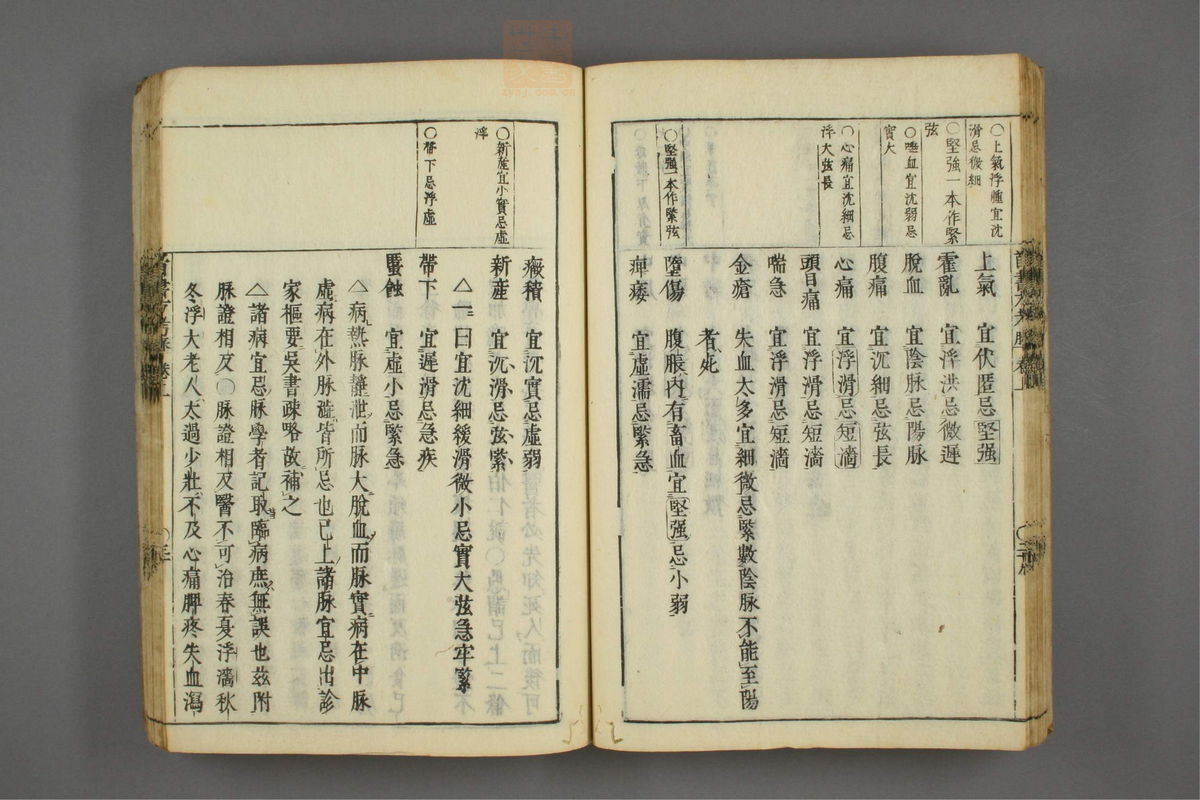 ○上氣浮腫宜沈
滑忌微細
○堅強一本作緊
弦
○嘔血宜沈弱忌
實大
○心痛宜沈細忌
浮大弦長
○堅強一本作緊弦
上氣 宜伏匿忌堅強
霍亂 宜浮洪忌微遲
脫血 宜陰脉忌陽脉
腹痛 宜沉細忌弦長
心痛 宜浮滑忌短濇
頭目痛 宜浮滑忌短濇
喘急 宜浮滑忌短濇
金瘡 失血太多宜細微忌緊數陰脉不能至陽
者死
墮傷 腹脹內有畜血宜堅强忌小弱
痺痿 宜虛濡忌緊急
○新產宜小實忌虛
浮
○帶下忌浮虛
癥積 宜沉實忌虛弱
新產 宜沉滑忌弦緊
△一曰宜沈細緩滑微小忌實大弦急牢緊
帶下 宜遲滑忌急疾
𧏾蝕 宜虛小忌緊急
△病熱脉靜泄而脉大脫血而脉實病在中脉
虛病在外脉濇皆所忌也已上諸脉宜忌出診
家樞要吳書疎略故補之
△諸病宜忌脉學者記取臨病庶無誤也茲附
脉證相反○脉證相反醫不可治春夏浮濇秋
冬浮大老人太過少壯不及心痛脾疼失血瀉